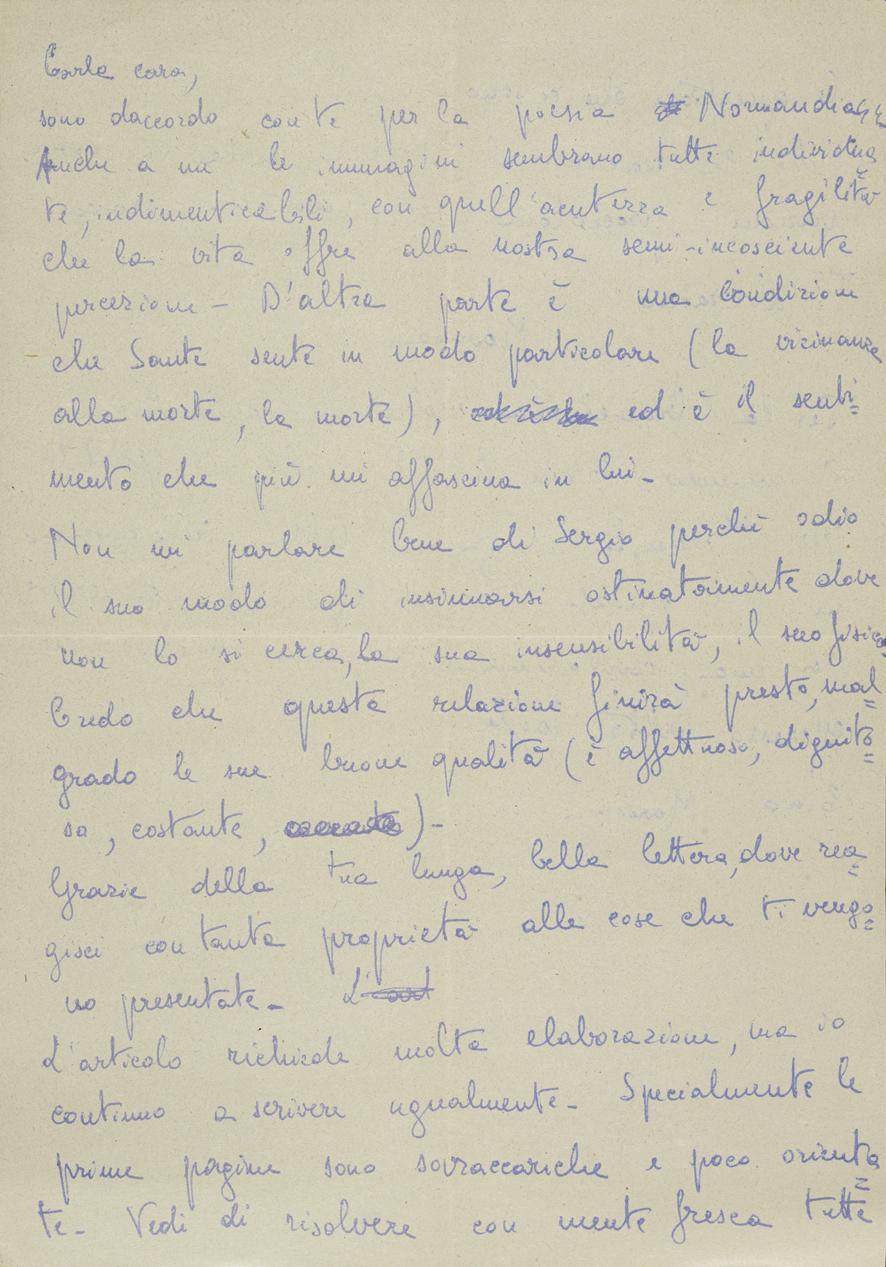 Carla cara,
sono daccordo con te per la poesia Normandia
Anche a me le immagini sembrano tutte individua
te, indimenticabili, con quell'acutezza e fragilità
che la vita offre alla nostra semi-incosciente
percezione - D'altra parte è una condizione
che Sante sente in modo particolare (la vicinanza
alla morte, la morte), ed è il senti=
mento che più mi affascina in lui -
Non mi parlare bene di Sergio perchè odio
il suo modo di insinuarsi ostinatamente dove
non lo si cerca, la sua insensibilità, il suo fisico
Credo che questa relazione finirà presto, mal=
grado le sue buone qualità (è affettuoso, dignito=
so, costante, )-
Grazie della tua lunga, bella lettera, dove rea=
gisci con tanta proprietà alle cose che ti vengo=
no presentate - L'
L'articolo richiede molta elaborazione, ma io
continuo a scrivere ugualmente - Specialmente le
prime pagine sono sovraccariche e poco orienta=
te - Vedi di risolvere con mente fresca tutte